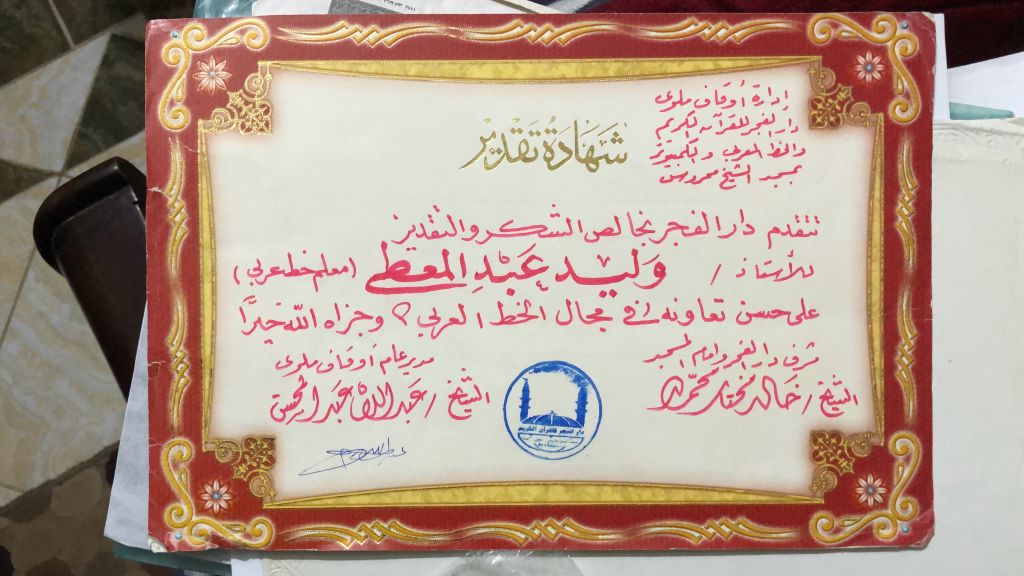 إدارة أوقاف ملوى
دار الفجر للقرآن الكريم
والخط العربي والكمبيوتر
بمسجد الشيخ محروس
شَهَادَة تَقدِير
تتقدم دار الفجر بخالص الشكر والتقدير
للأستاذ / وَليد عَبْد المعطى (معلم خط عربي)
على حسن تعاونه في مجال الخط العربي ، وجزاه الله خيرًا
مشرف دار الفجر وإمام المسجد
الشيخ / خالد محمد
مدير عام أوقاف ملوى
الشيخ / عبد اللاه عبد المحسن
دار الفجر للقرآن الكريم